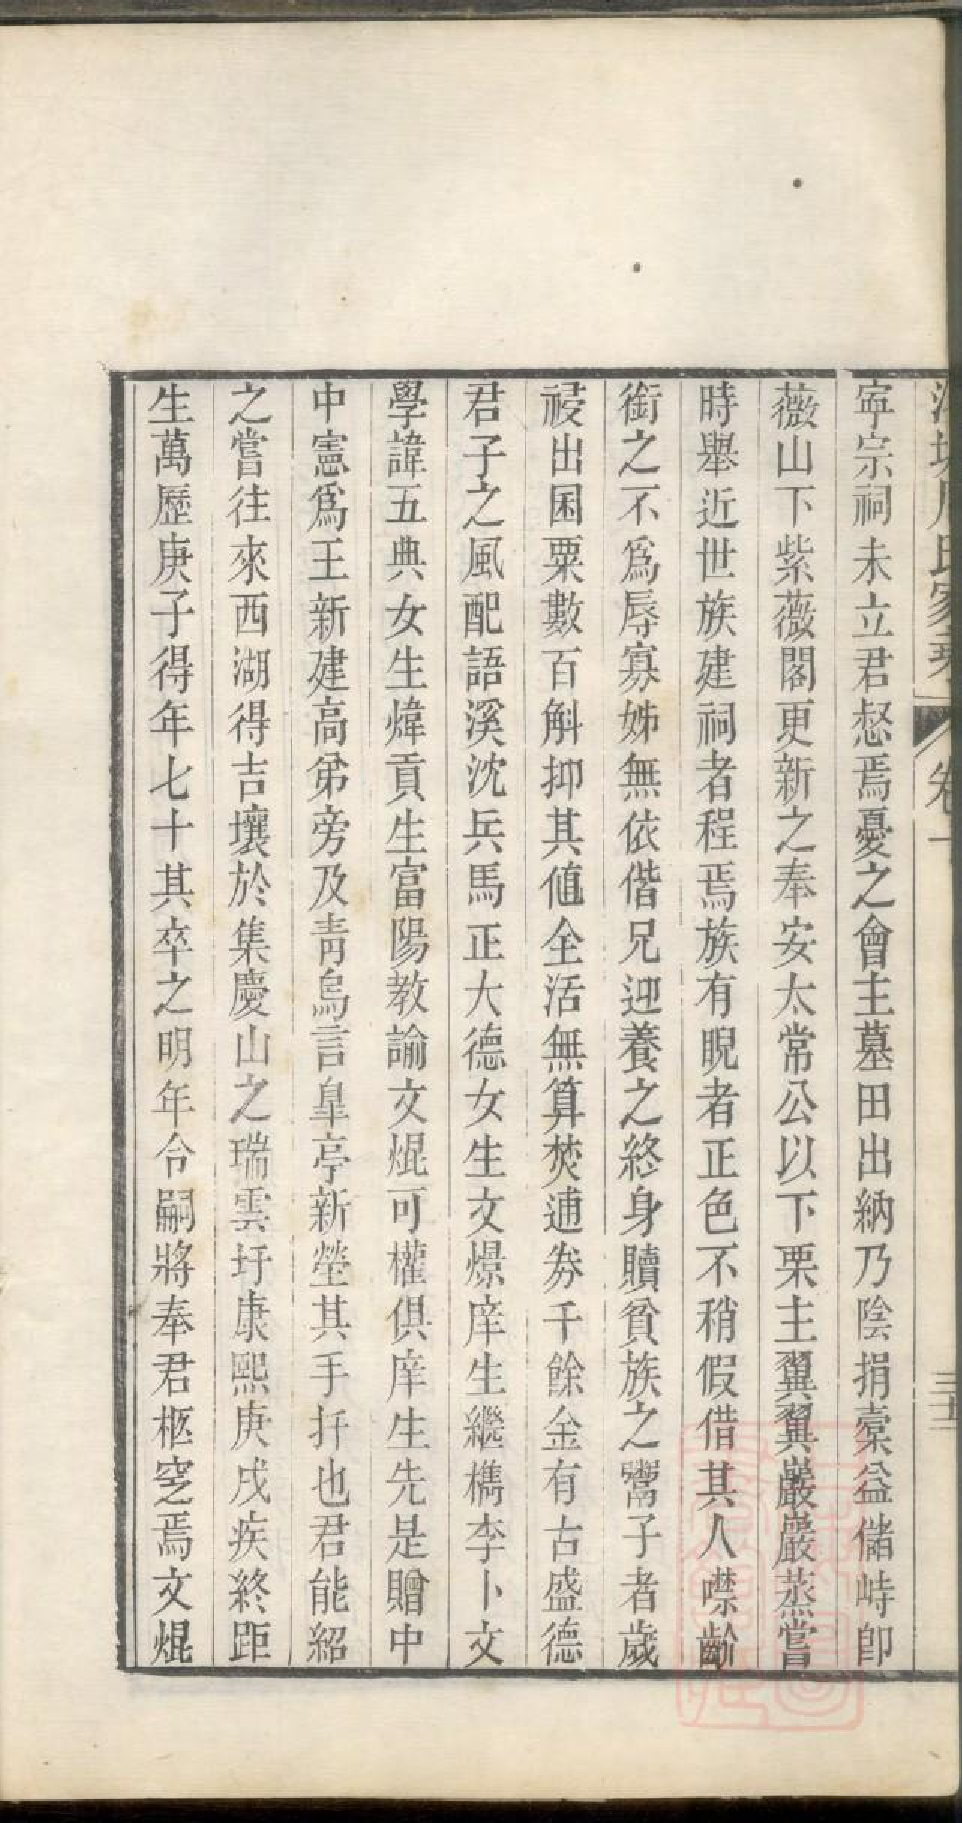 甯宗祠未立君惄焉憂之會主墓田出納乃陰捐橐益儲峙卽
薇山下紫薇閣更新之奉安太常公以下栗主翼翼巖巖蒸嘗
時舉近世族建祠者程焉族有睨者正色不稍假借其人噤齘
銜之不爲辱寡姊無依偕兄迎養之終身贖貧族之鬻子者歲
祲出囷粟數百斛抑其値全活無算焚逋券千餘金有古盛德
君子之風配語溪沈兵馬正大德女生文燝庠生繼檇李卜文
學諱五典女生煒貢生富陽教諭文焜可權俱庠生先是贈中
中憲爲王新建高弟旁及靑烏言臯亭新塋其手扦也君能紹
之嘗往來西湖得吉壤於集慶山之瑞雲圩康熙庚戌疾終距
生萬歷庚子得年七十其卒之明年令嗣將奉君柩窆焉文焜